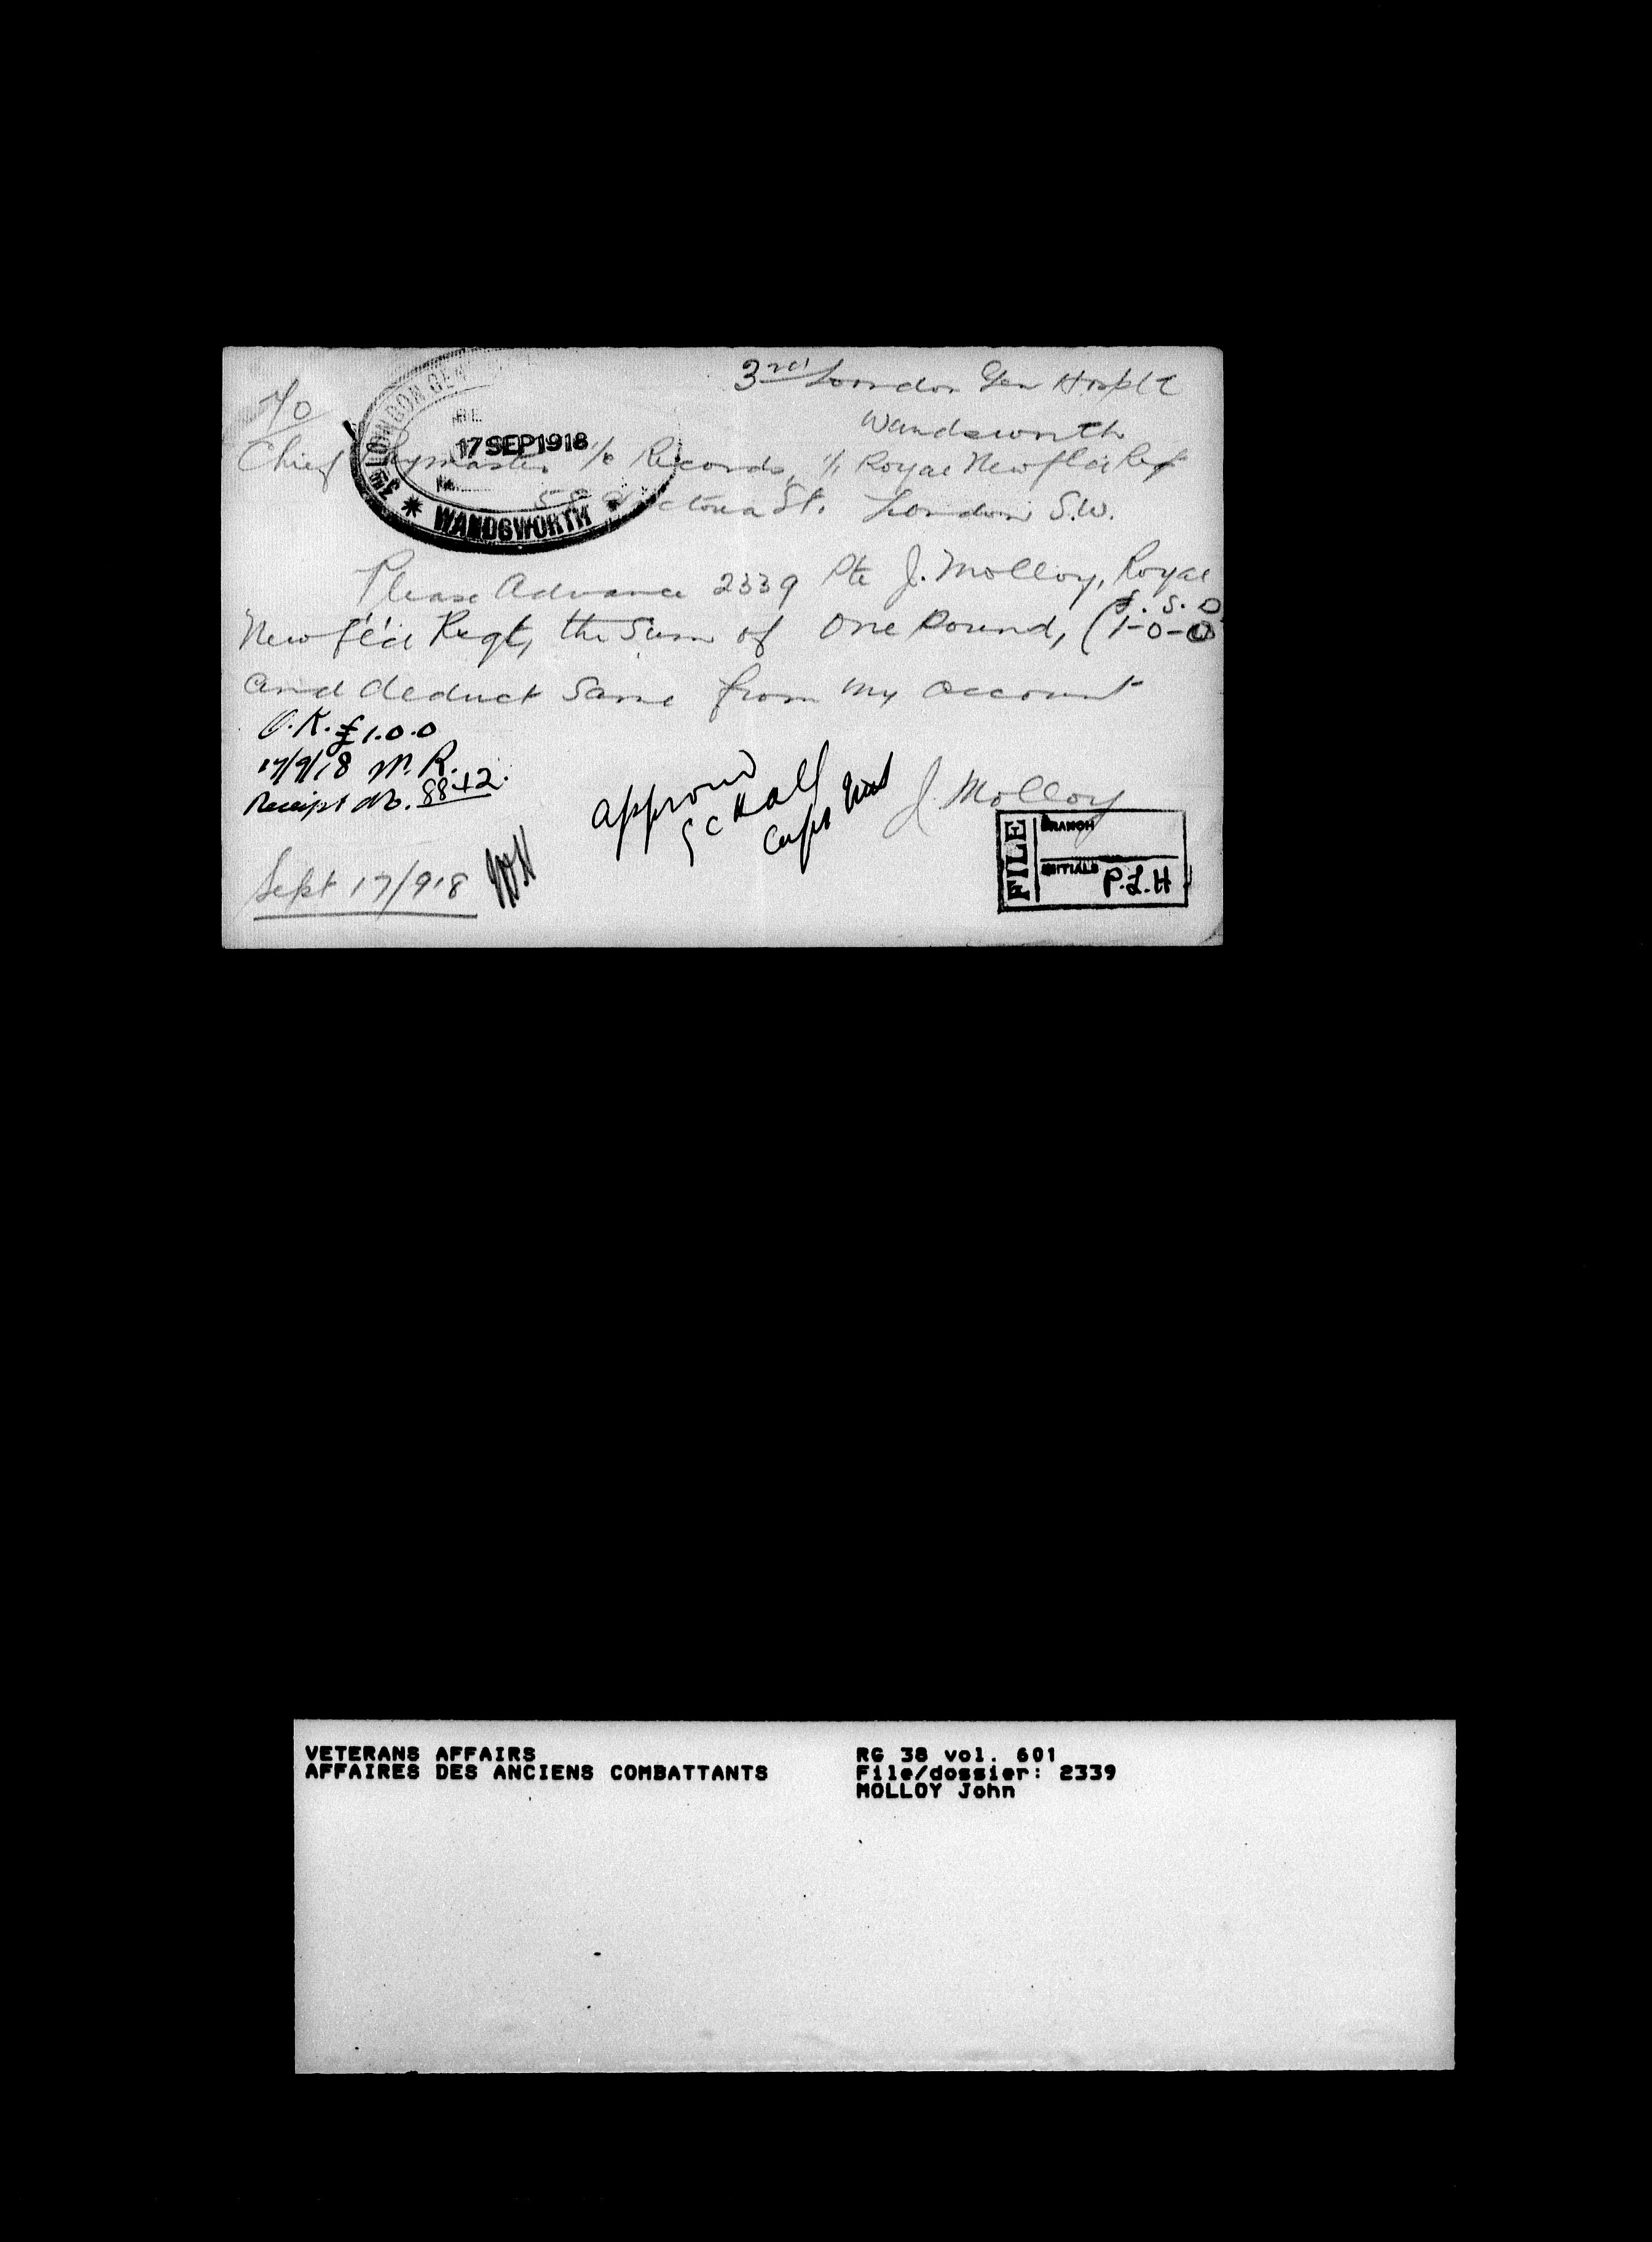 3rd London Gen Hosplt
Wandsworth
To
Chief Paymaster i/c Records, 1/ Royal Newf'l'd Regt
58 Victoria St. London S.W.
3RD LONDON GEN
17 SEP 1918
WANDSWORTH
Please Advance 2339 Pte J. Molloy, Royal
Newf'l'd Regt, the Sum of One Pound, (£. S. D
1-0-0
and deduct same from my account
O.K. £1.0.0
17/9/18 M.R.
Receipt No. 8842.
approved
Hall
Capt
J. Molloy
Sept 17/918
FILE
BRANCH
INITIALS P.L.H
VETERANS AFFAIRS
AFFAIRES DES ANCIENS COMBATTANTS
RG 38 vol. 601
File/dossier: 2339
MOLLOY John